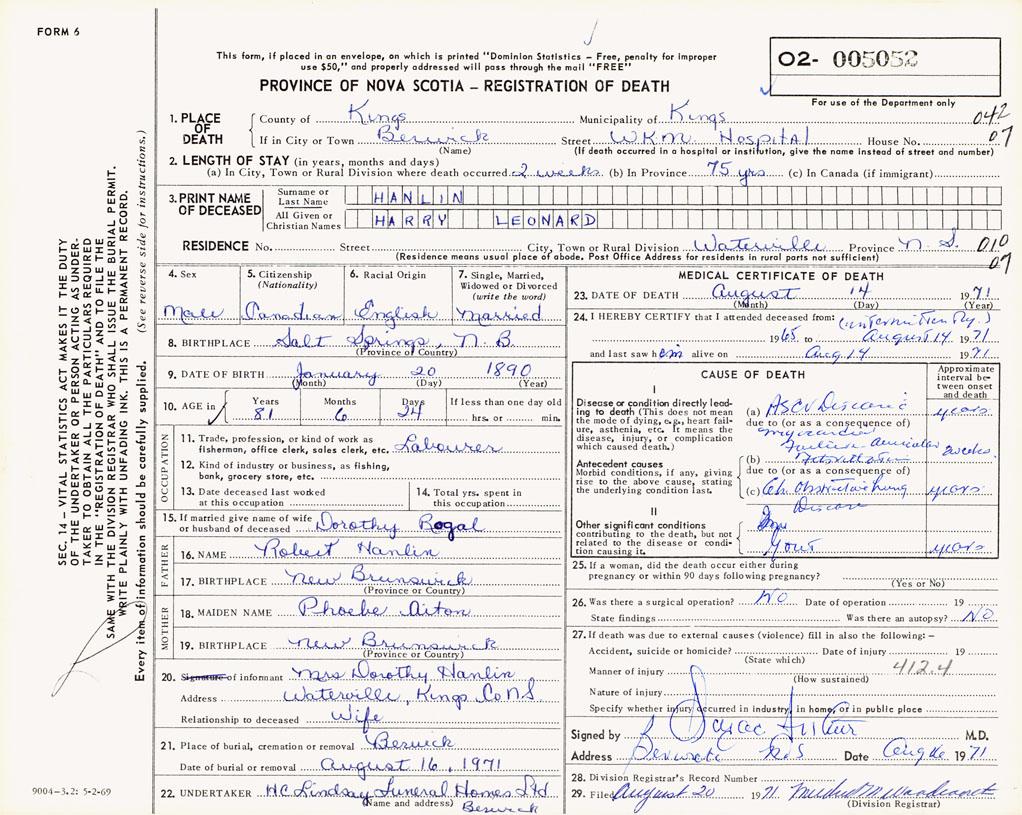 FORM 6
This form, if placed in an envelope, on which is printed "Dominion Statistics – Free, penalty for improper
use $50," and properly addressed will pass through the mail "FREE"
O2- 005052
PROVINCE OF NOVA SCOTIA – REGISTRATION OF DEATH
For use of the Department only
1. PLACE OF DEATH County of Kings Municipality of Kings 042
If in City or Town Berwick Street W.K.M. Hospital House No. 07
(Name) (If death occurred in a hospital or institution, give the name instead of street and number)
2. LENGTH OF STAY (in years, months and days)
(a) In City, Town or Rural Division where death occurred 2 weeks (b) In Province 75 yrs (c) In Canada (if immigrant)
3. PRINT NAME OF DECEASED Surname or Last Name HANLIN
All Given or Christian Names HARRY LEONARD
RESIDENCE No. Street City, Town or Rural Division Waterville Province N.S. 010
(Residence means usual place of abode. Post Office Address for residents in rural parts not sufficient) 07
4. Sex 5. Citizenship (Nationality) 6. Racial Origin 7. Single, Married, Widowed or Divorced (write the word)
Male Canadian English Married
8. BIRTHPLACE Salt Springs, N.B.
(Province or Country)
9. DATE OF BIRTH January 20 1890
(Month) (Day) (Year)
10. AGE in Years Months Days If less than one day old
81 6 24 hrs. or min.
OCCUPATION
11. Trade, profession, or kind of work as
fisherman, office clerk, sales clerk, etc. Labourer
12. Kind of industry or business, as fishing,
bank, grocery store, etc.
13. Date deceased last worked at this occupation 14. Total yrs. spent in this occupation
15. If married give name of wife
or husband of deceased Dorothy Rogal
FATHER
16. NAME Robert Hanlin
17. BIRTHPLACE New Brunswick
(Province or Country)
MOTHER
18. MAIDEN NAME Phoebe Aiton
19. BIRTHPLACE New Brunswick
(Province or Country)
20. Signature of informant Mrs Dorothy Hanlin
Address Waterville, Kings Co N.S.
Relationship to deceased Wife
21. Place of burial, cremation or removal Berwick
Date of burial or removal August 16, 1971
22. UNDERTAKER H.C. Lindsay Funeral Homes Ltd
(Name and address) Berwick
MEDICAL CERTIFICATE OF DEATH
23. DATE OF DEATH August 14 1971
(Month) (Day) (Year)
24. I HEREBY CERTIFY that I attended deceased from: (intermittently)
1965 to August 14 1971
and last saw him alive on Aug 14 1971
CAUSE OF DEATH
Approximate interval between onset and death
I
Disease or condition directly leading to death (This does not mean the mode of dying, e.g., heart failure, asthenia, etc. It means the disease, injury, or complication which caused death.)
(a) ASCV Disease years
due to (or as a consequence of)
Failure 2 weeks
(b)
Antecedent causes
Morbid conditions, if any, giving rise to the above cause, stating the underlying condition last.
due to (or as a consequence of)
(c) Ch. Obstructive Lung years
Disease
II
Other significant conditions
contributing to the death, but not related to the disease or condition causing it.
Gout years
25. If a woman, did the death occur either during
pregnancy or within 90 days following pregnancy?
(Yes or No)
26. Was there a surgical operation? NO Date of operation 19
State findings Was there an autopsy? NO
27. If death was due to external causes (violence) fill in also the following: –
Accident, suicide or homicide? Date of injury 19
(State which)
Manner of injury 412.4
(How sustained)
Nature of injury
Specify whether injury occurred in industry, in home, or in public place
Signed by M.D.
Address Berwick N.S Date Aug 16 1971
28. Division Registrar's Record Number
29. Filed August 20 1971
(Division Registrar)
SEC. 14 – VITAL STATISTICS ACT MAKES IT THE DUTY
OF THE UNDERTAKER OR PERSON ACTING AS UNDER-
TAKER TO OBTAIN ALL THE PARTICULARS REQUIRED
IN THE "REGISTRATION OF DEATH" AND TO FILE THE
SAME WITH THE DIVISION REGISTRAR WHO SHALL ISSUE THE BURIAL PERMIT.
WRITE PLAINLY WITH UNFADING INK. THIS IS A PERMANENT RECORD.
Every item of information should be carefully supplied. (See reverse side for instructions.)
9004–3.2: 5-2-69